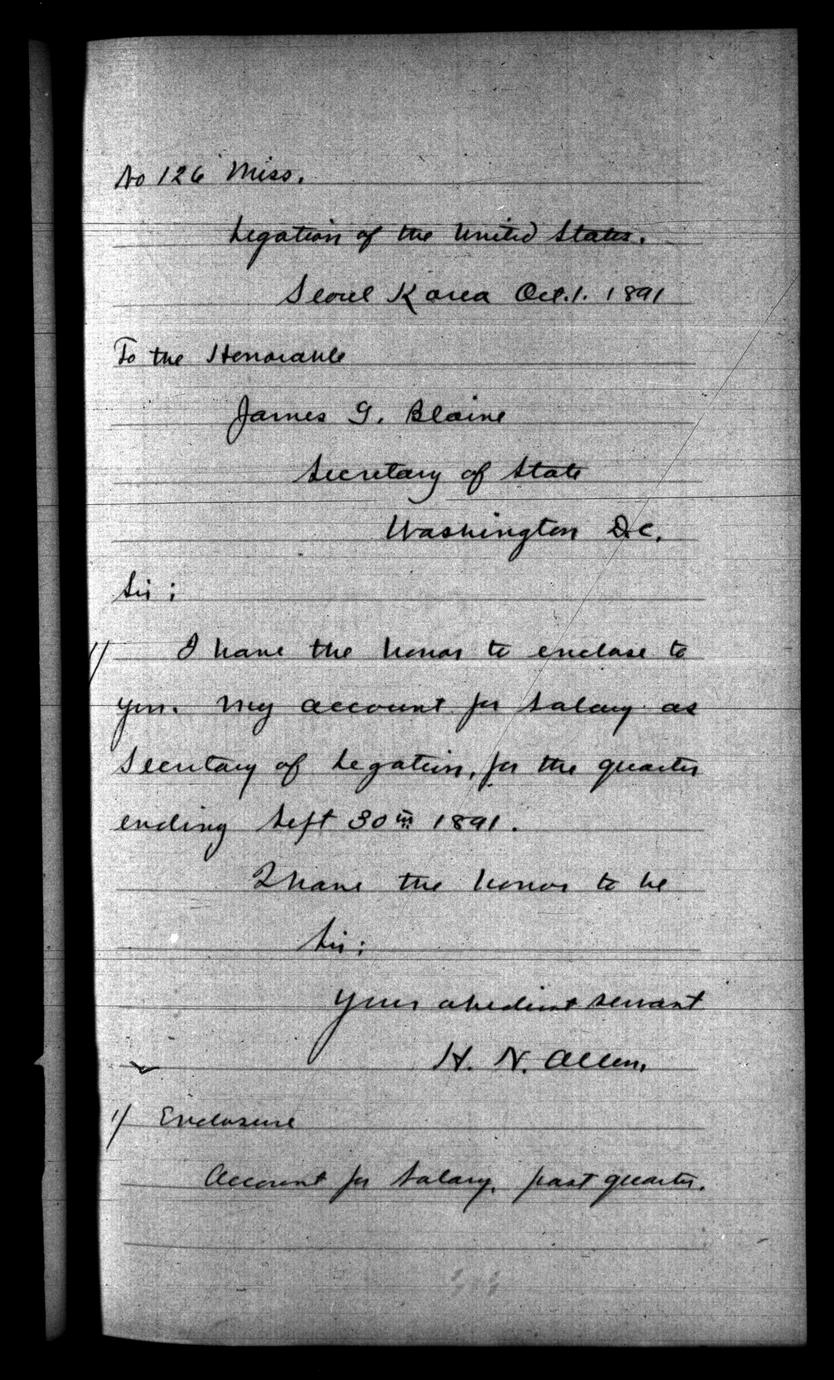 No 126 Miss.
Legation of the United States.
Seoul Korea Oct. 1. 1891
To the Honorable
James G. Blaine
Secretary of State
Washington D.C.
Sir :
1/ I have the honor to enclose to
you. my account for salary as
Secretary of Legation, for the quarter
ending Sept 30th 1891.
I have the honor to be
Sir :
Your obedient servant
H. N. Allen,
1/ Enclosure
Account for salary. past quarter.